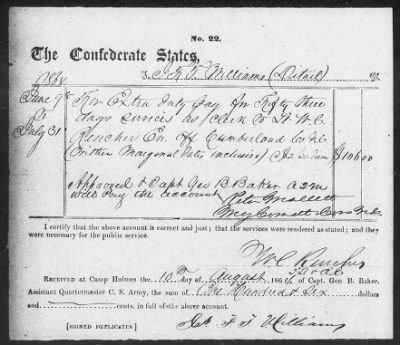 No. 22.
The Confederate States,
F. F. Williams (Detail)
June 9th For Extra duty pay for Fifty three
to days services as clerk to Lt W. C.
July 31 Rencher En. off Cumberland Co N.C.
(within marginal dates inclusive) $106 00
Approved & Capt Geo B. Baker A Q M
will pay the account Peter Mallett
I certify that the above account is correct and just; that the services were rendered as stated; and they
were necessary for the public service.
W C Rencher
RECEIVED at Camp Holmes the 10th day of August 186 of Capt. Geo B. Baker,
Assistant Quartermaster C. S. Army, the sum of One Hundred & Six dollars
and cents, in full of the above account.
[SIGNED DUPLICATES.]
F. F. Williams